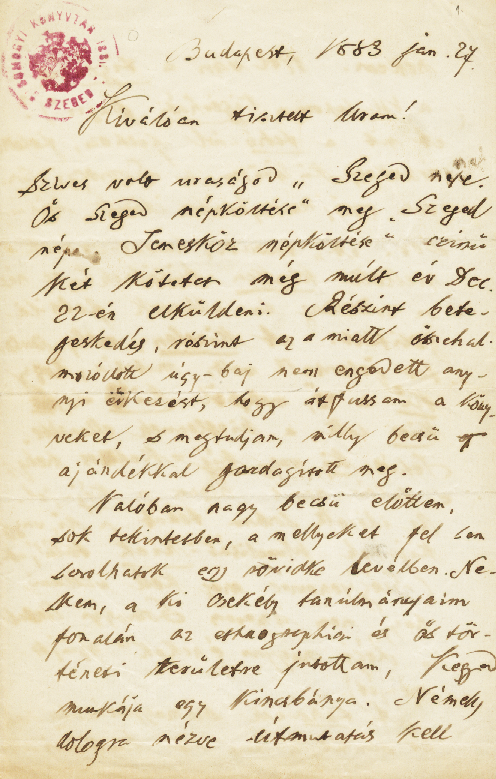 SOMOGYI KÖNYVTÁR
SZEGED
1.
Budapest, 1883 jan. 27.
Kiválóan tisztelt Uram!
Szives volt uraságod „Szeged népe.
Ős Szeged népköltése" meg „Szeged
népe Temesköz népköltése" czimü
két kötetet még múlt év Dec.
22-én elküldeni. Részint bete-
geskedés, részint az a miatt öszehal-
mozódott ügy-baj nem engedett any-
nyi érkezést, hogy átfussam a köny-
veket, s megtudjam, milly becsü
ajándékkal gazdagitott meg.
Valóban nagy becsü előttem,
sok tekintetben, a mellyeket fel sem
sorolhatok egy rövidke levélben. Ne-
kem, a ki csekély tanúlmányaim
fonalán az ethnographiai és ős tör-
téneti területre jutottam, Kegyed
munkája egy kincsbánya. Némelly
dologra nézve útmutatás kell